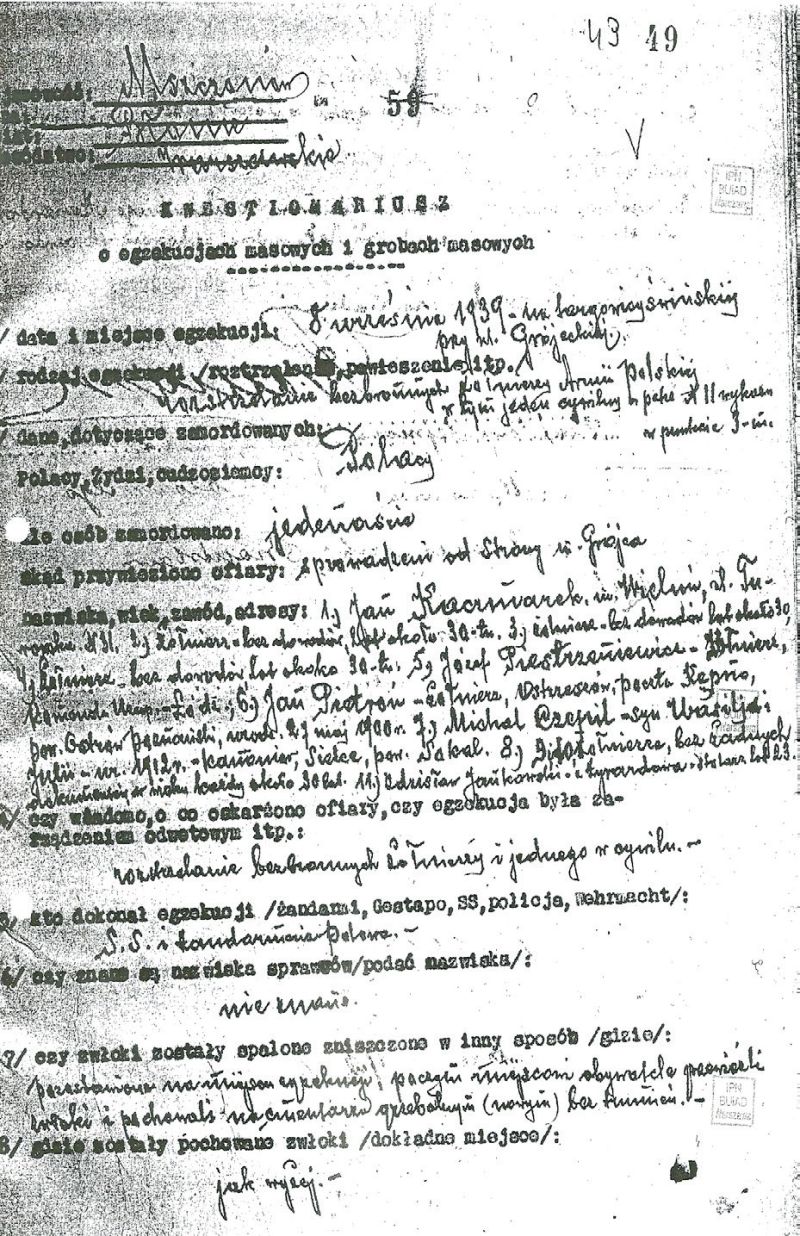 43 49
Mszczonów
59
Błonie
warszawskie
IPN
BUiAD
Warszawa
KWESTIONARIUSZ
o egzekucjach masowych i grobach masowych
/ data i miejsce egzekucji: 8 września 1939 - na targowicy świńskiej
przy ul. Grójeckiej.
/ rodzaj egzekucji /roztrzelanie, powieszenie itp.
rozstrzelanie bezbronnych żołnierzy Armii Polskiej
w tym jeden cywilny
w punkcie 3-im.
/ dane, dotyczące zamordowanych:
Polacy, Żydzi, cudzoziemcy: Polacy
ile osób zamordowano: jedenaście
skąd przywieziono ofiary: sprowadzeni od strony m. Grójca
nazwiska, wiek, zawód, adresy: 1.) Jan Kaczmarek, m. Wieluń, ul.
2.) Żołnierz - bez dowodów, lat około 30-tu. 3.) żołnierz - bez dowodów lat około 30,
4.) Żołnierz - bez dowodów lat około 30-tu. 5.) Józef - Żołnierz,
Komenda Uzup. - Łódź; 6.) Jan Piotroń - Żołnierz, Ostrzeszów, poczta Kępno,
pow. Ostrów Poznański, urodz. 27 maj 1900 r. 7.) Michał - syn
Julii - ur. 1912 r. - kanonier, Sielce, pow. Sokal. 8.) 9, 10 żołnierze, bez żadnych
dokumentów w wieku każdy około 30 lat. 11.) Zdzisław Jankowski - z Żyrardowa - stolarz lat 23.
4/ czy wiadomo, o co oskarżono ofiary, czy egzekucja była za-
rządzeniem odwetowym itp.:
rozstrzelanie bezbronnych żołnierzy i jednego w cywilu. -
5/ kto dokonał egzekucji /żandarmi, Gestapo, SS, policja, Wehrmacht/:
S.S. i żandarmeria Polowa. -
6/ czy znane są nazwiska sprawców/podać nazwiska/:
nie znane.
7/ czy zwłoki zostały spalone zniszczone w inny sposób /gdzie/:
pozostawione na miejscu egzekucji, poczym miejscowi obywatele przenieśli
zwłoki i pochowali na cmentarzu grzebalnym (nowym) bez trumien. -
IPN
BUiAD
Warszawa
8/ gdzie zostały pochowane zwłoki /dokładne miejsce/:
jak wyżej. -